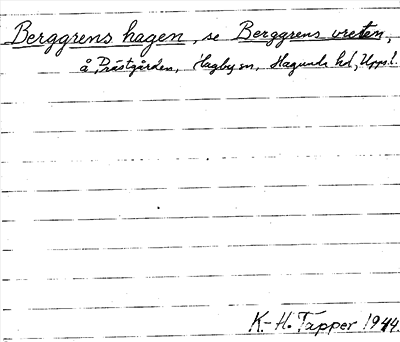 Berggrens hagen, se Berggrens vreten,
å Prästgården, Hagby sn, Hagunda hd, Upps.l.
K.-H. Tapper 1944